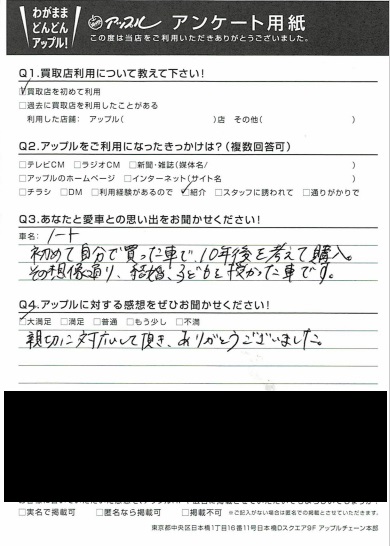 わがまま
どんどん
アップル!
アップル アンケート用紙
この度は当店をご利用いただきありがとうございました。
Q1.買取店利用について教えて下さい!
☑買取店を初めて利用
□過去に買取店を利用したことがある
利用した店舗: アップル( )店 その他( )
Q2.アップルをご利用になったきっかけは?(複数回答可)
□テレビCM □ラジオCM □新聞・雑誌(媒体名/ )
□アップルのホームページ □インターネット(サイト名 )
□チラシ □DM □利用経験があるので ☑紹介 □スタッフに誘われて □通りがかりで
Q3.あなたと愛車との思い出をお聞かせください!
車名: ノート
初めて自分で買った車で、10年後を考えて購入。
その想像通り、結婚、子どもを授かった車です。
Q4.アップルに対する感想をぜひお聞かせください!
☑大満足 □満足 □普通 □もう少し □不満
親切に対応して頂き、ありがとうございました。
□実名で掲載可 □匿名なら掲載可 □掲載不可 ※ご記入がない場合は匿名での掲載とさせていただきます。
東京都中央区日本橋1丁目16番11号日本橋Dスクエア9F アップルチェーン本部